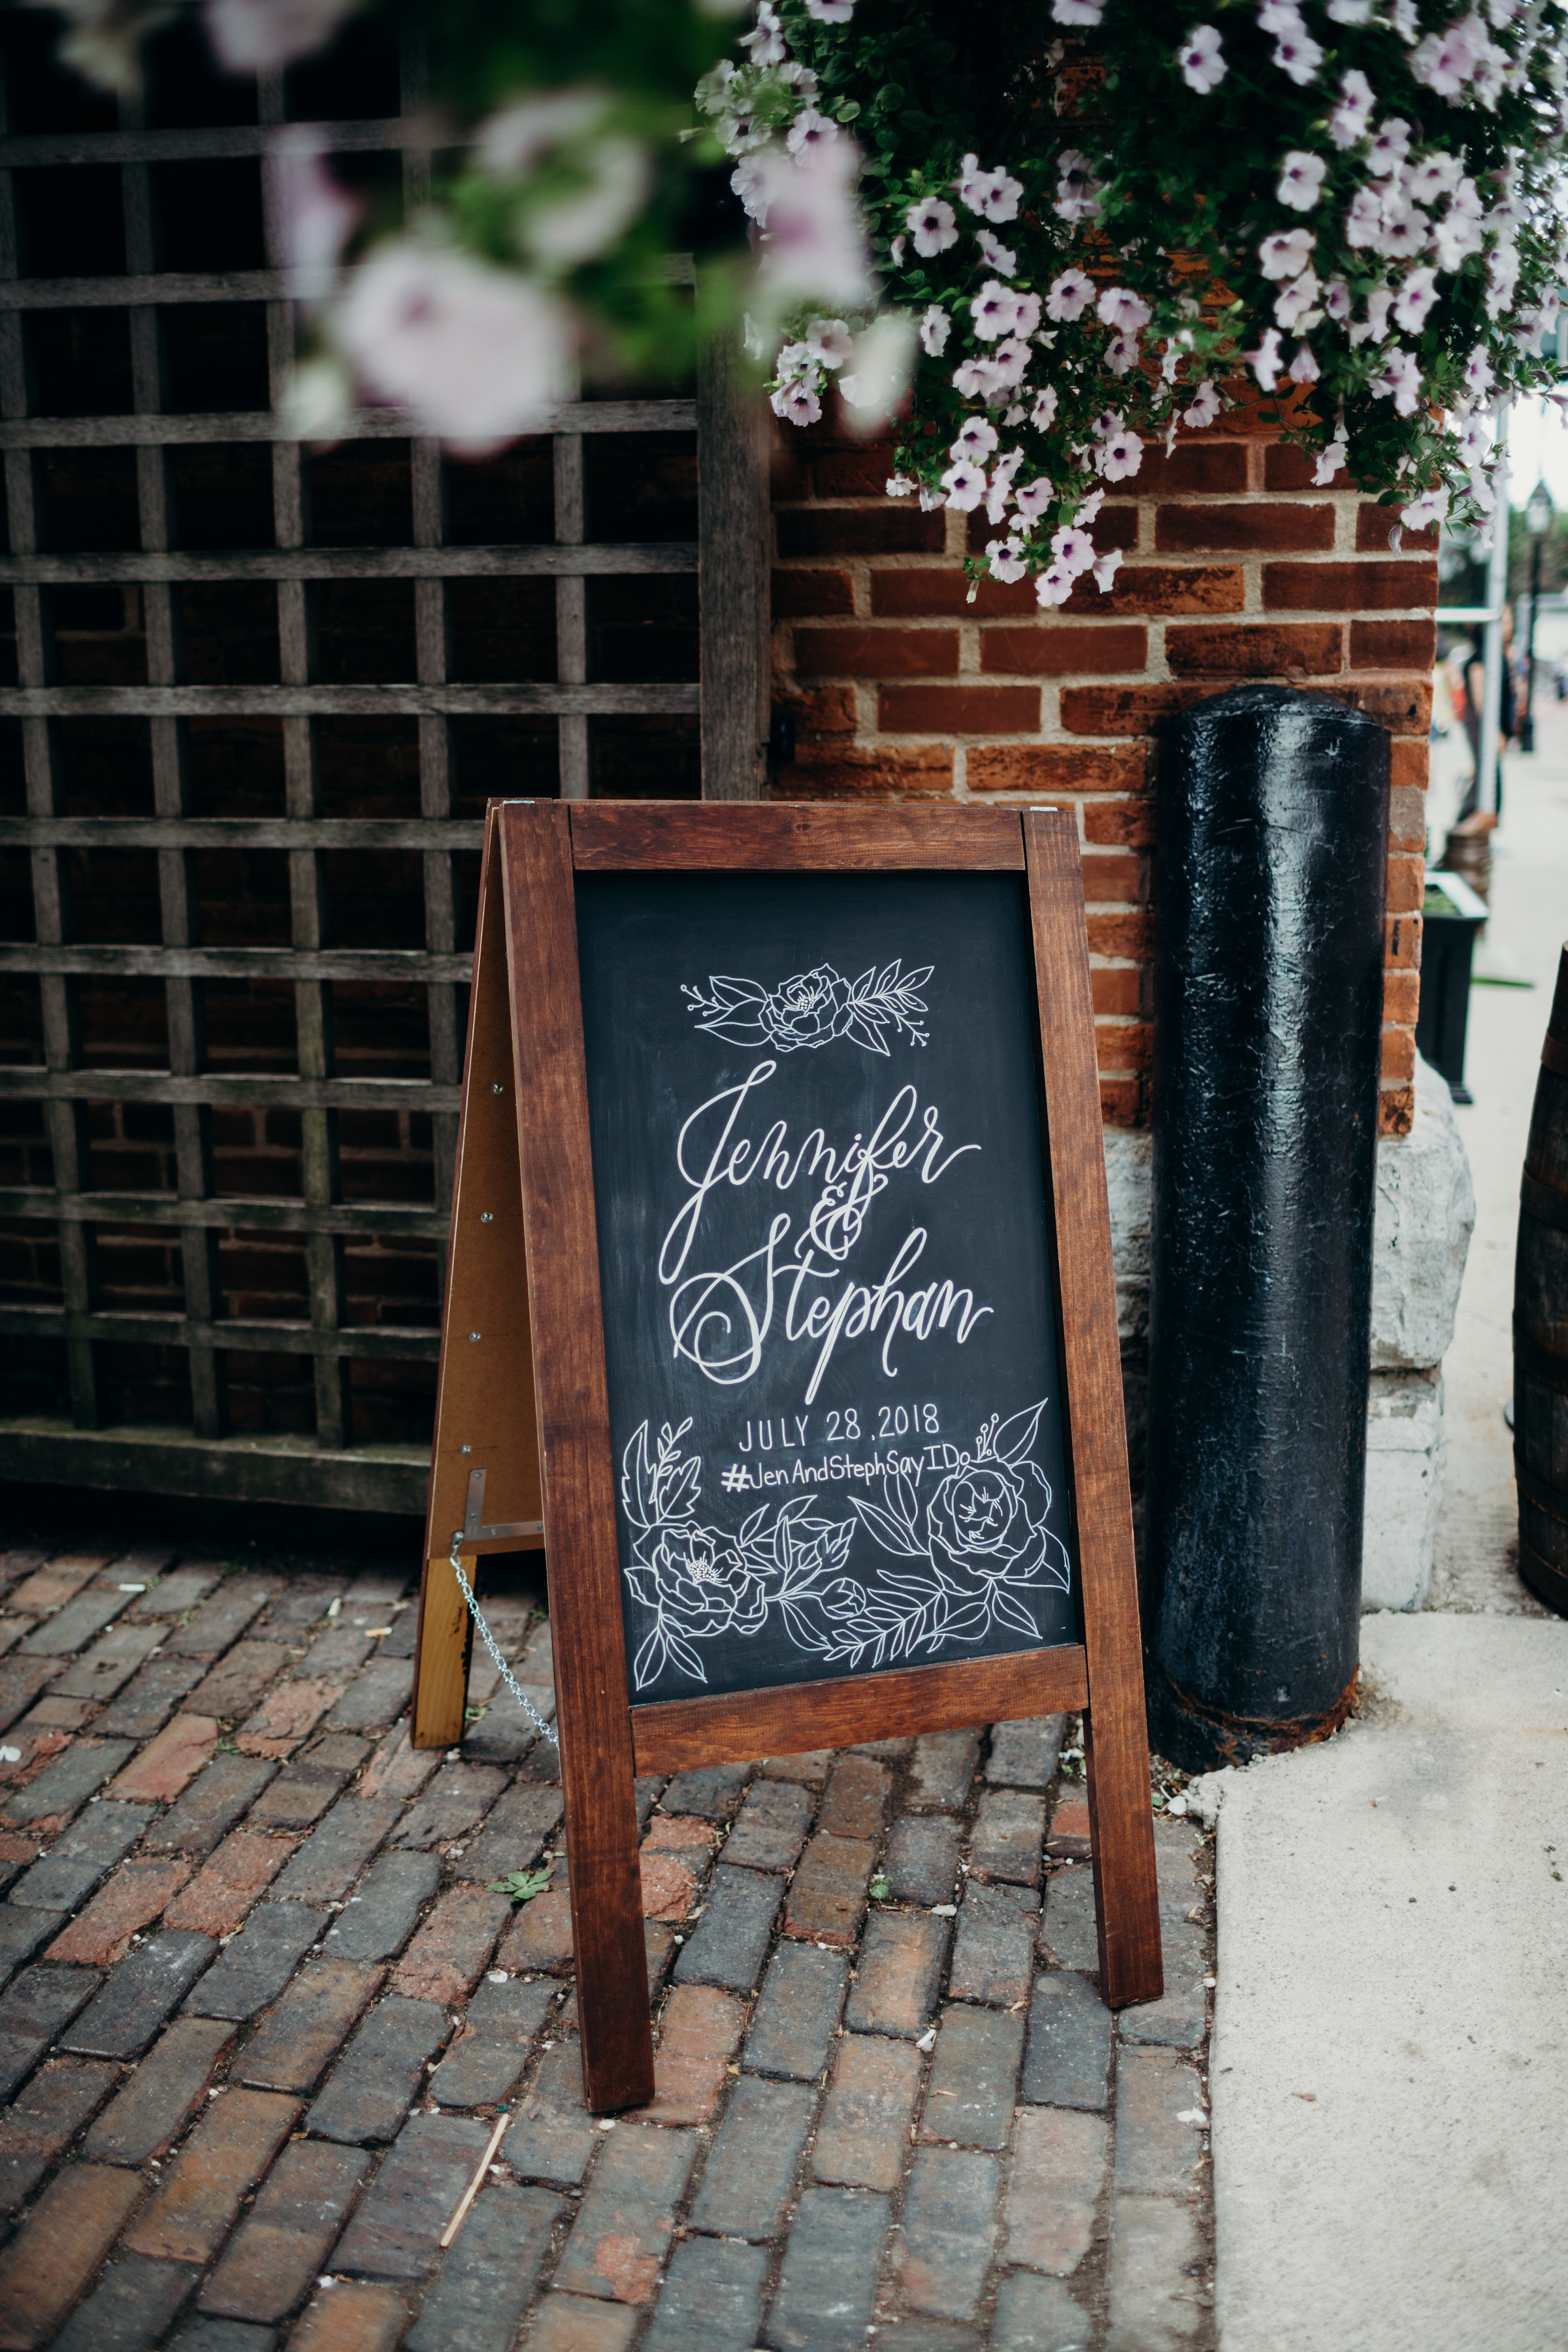 Jennifer
&
Stephan
JULY 28, 2018
#JenAndStephSayIDo